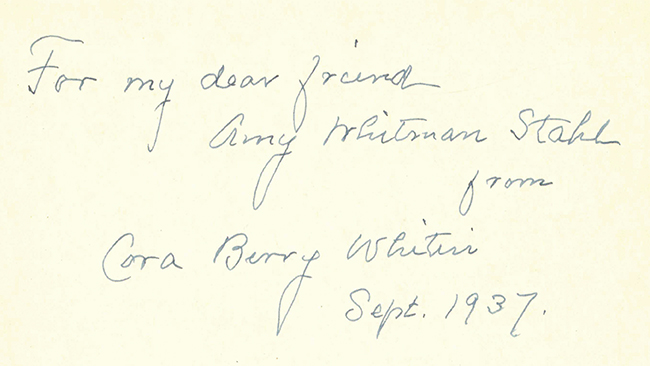 For my dear friend
Amy Whitman Stahl
from
Cora Berry Whitin
Sept. 1937.